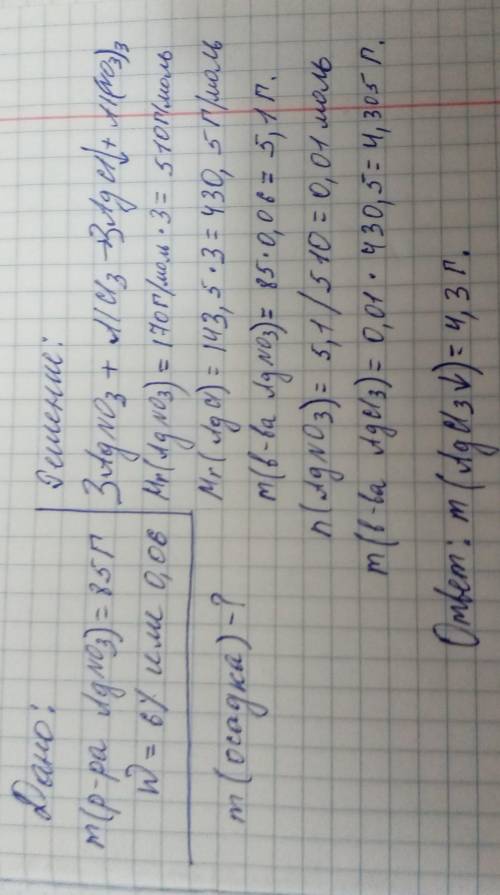 Дано:
m(р-ра AgNO3) = 85 г
W = 6% или 0,06
m(осадка) - ?
Решение:
3AgNO3 + AlCl3 → 3AgCl↓ + Al(NO3)3
Mr(AgNO3) = 170 г/моль · 3 = 510 г/моль
Mr(AgCl) = 143,5 · 3 = 430,5 г/моль
m(в-ва AgNO3) = 85 · 0,06 = 5,1 г.
n(AgNO3) = 5,1 / 510 = 0,01 моль
m(в-ва AgCl3) = 0,01 · 430,5 = 4,305 г.
Ответ: m(AgCl3↓) = 4,3 г.